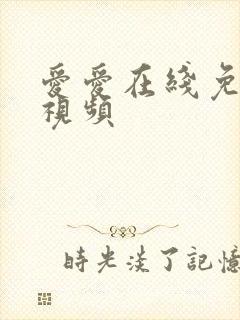 愛愛在綫免
視頻
時光淡了記憶